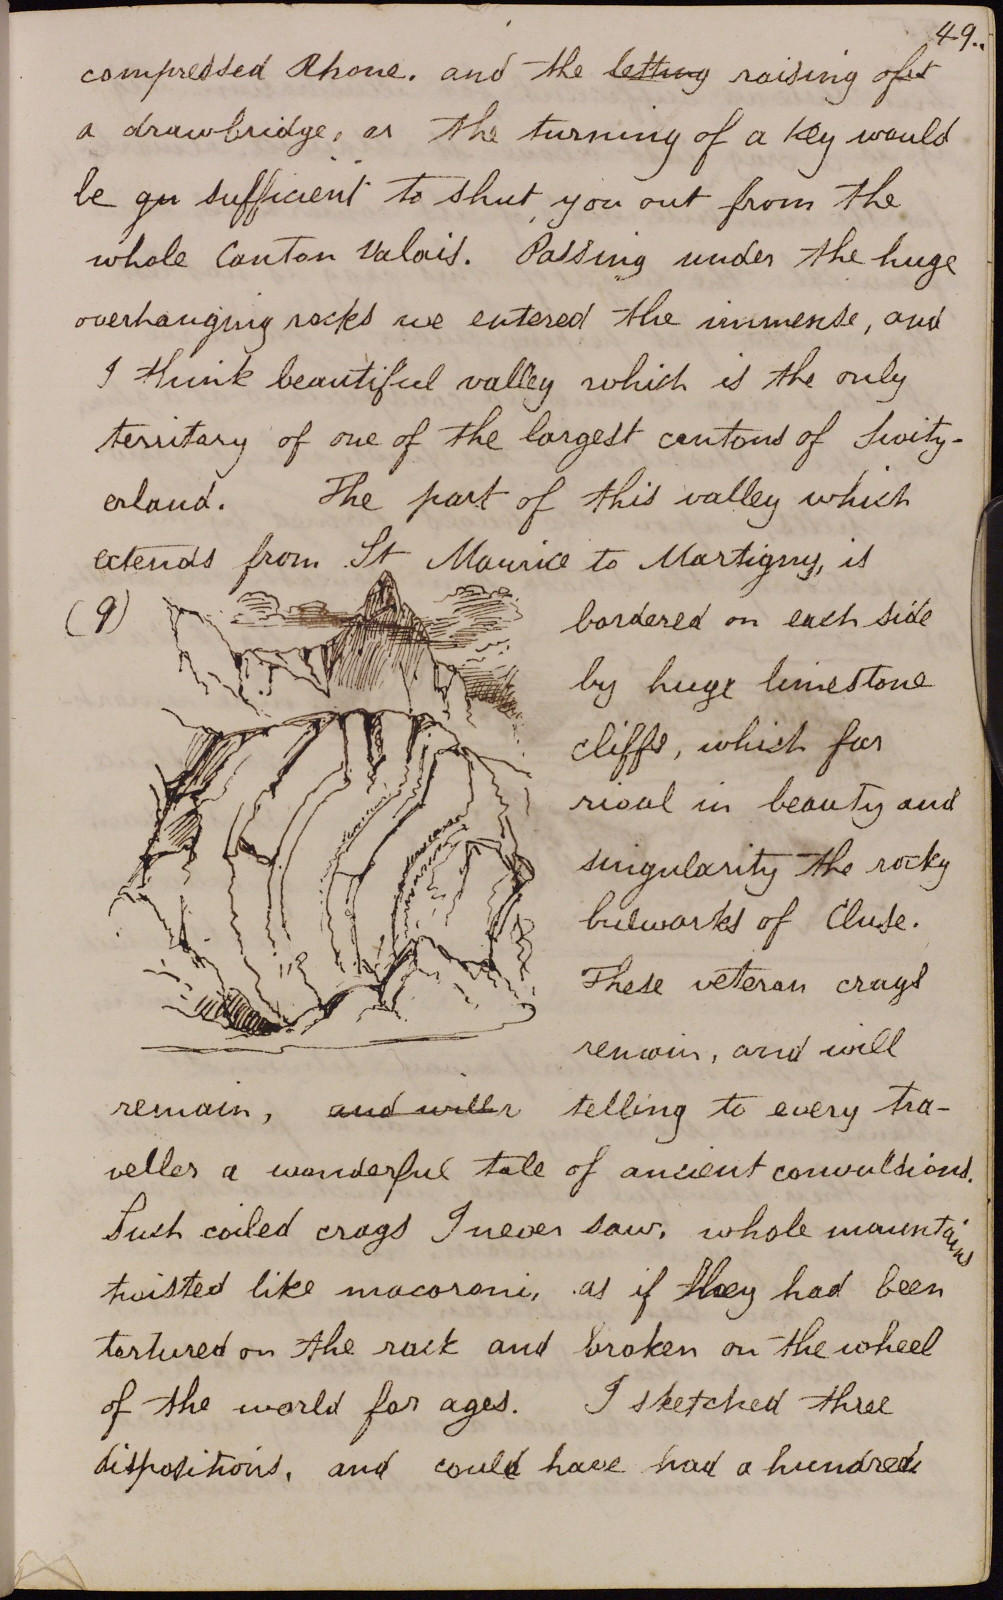 49..
compressed Rhone. and the letting raising of it
a drawbridge, or the turning of a key would
be qu sufficient to shut you out from the
whole Canton Valais. Passing under the huge
overhanging rocks we entered the immense, and
I think beautiful valley which is the only
territory of one of the largest cantons of Switz-
erland. The part of this valley which
extends from St Maurice to Martigny, is
(9)
bordered on each side
by huge limestone
cliffs, which far
rival in beauty and
singularity the rocky
bulwarks of Cluse.
These veteran crags
remain, and will
remain, and will telling to every tra-
veller a wonderful tale of ancient convulsions.
Such coiled crags I never saw, whole mountains
twisted like macaroni, as if they had been
tortured on the rack and broken on the wheel
of the world for ages. I sketched three
dispositions, and could have had a hundred